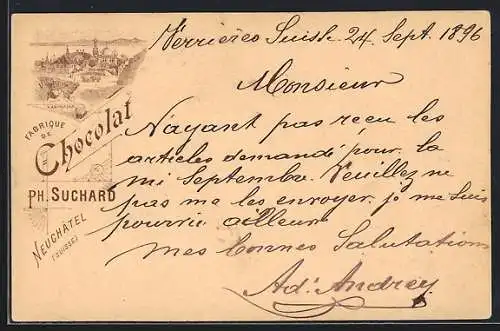 Verrières Suisse 24 Sept. 1896
Monsieur
N'ayant pas reçu les
articles demandé pour la
mi Septembre. Veuillez ne
pas me les envoyer. je me suis
pourvu ailleur
mes bonnes Salutations
Ad. Andrey
FABRIQUE
DE
Chocolat
PH. SUCHARD
NEUCHÂTEL
(SUISSE)